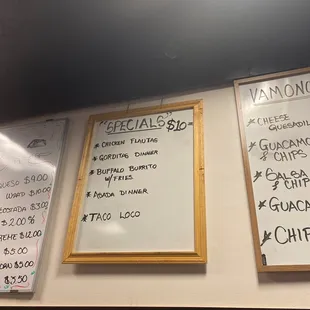 QUESO $4.00
$10.00
$3.00
$2.00
$12.00
$5.00
$5.00
$3.50
"SPECIALS" $10
* CHICKEN FLAUTAS
* GORDITAS DINNER
* BUFFALO BURRITO
W/ FRIES
* ASADA DINNER
* TACO LOCO
VAMONO
* CHEESE
QUESADIL
* GUACAMO
& CHIPS
* SALSA
& CHIP
* GUACA
* CHIP